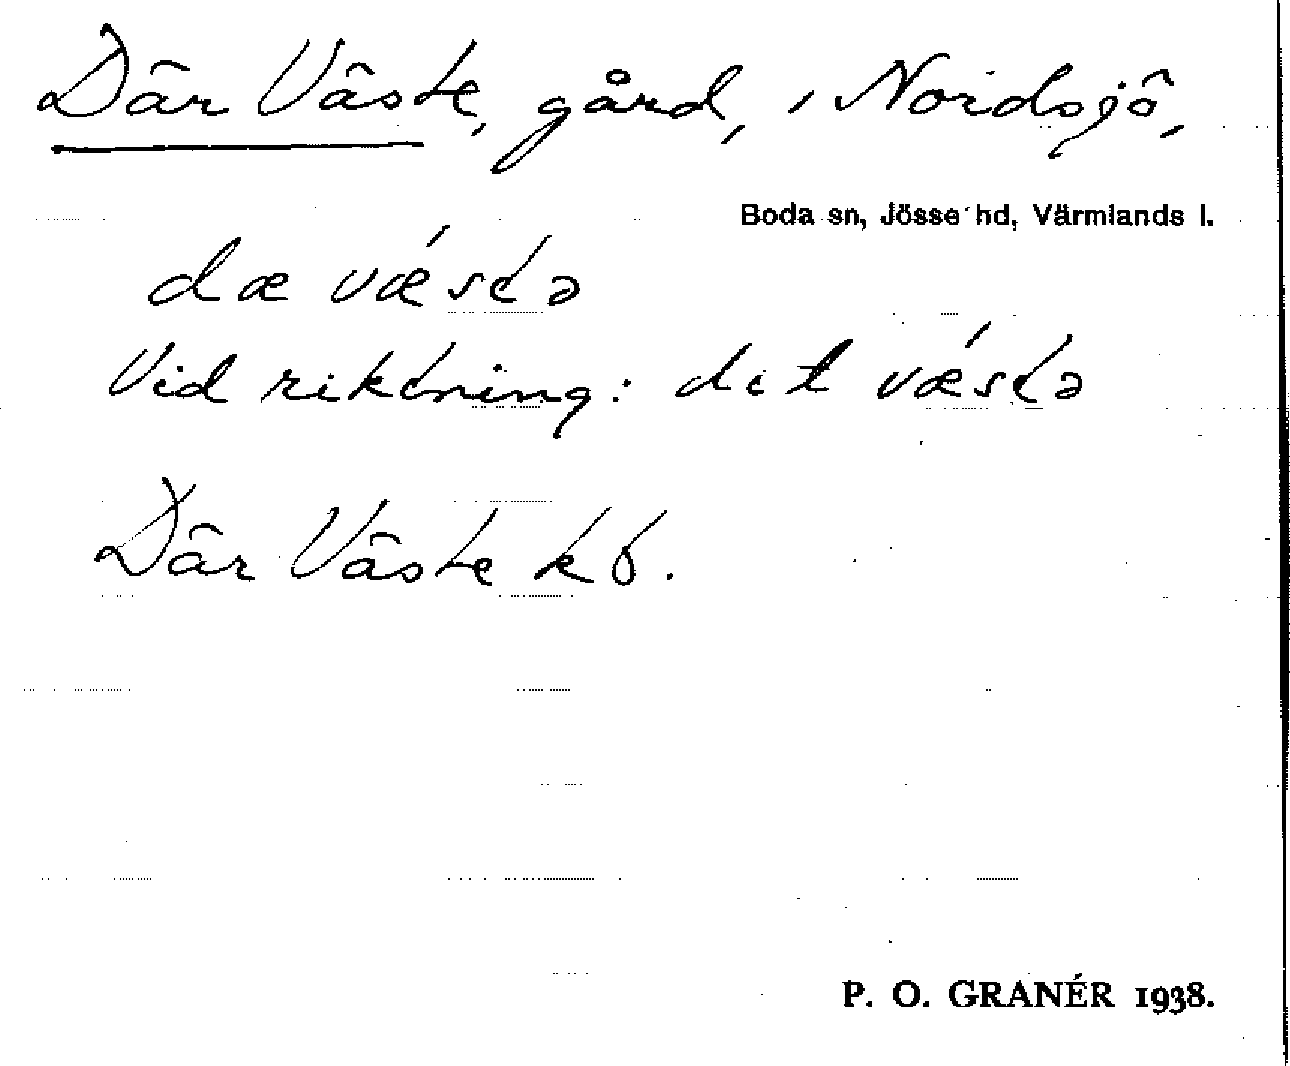 Där Väste, gård, i Nordsjö,
Boda sn, Jösse hd, Värmlands l.
dæ vǽstə
Vid riktning: dit vǽstə
Där Väste kb.
P. O. GRANÉR 1938.